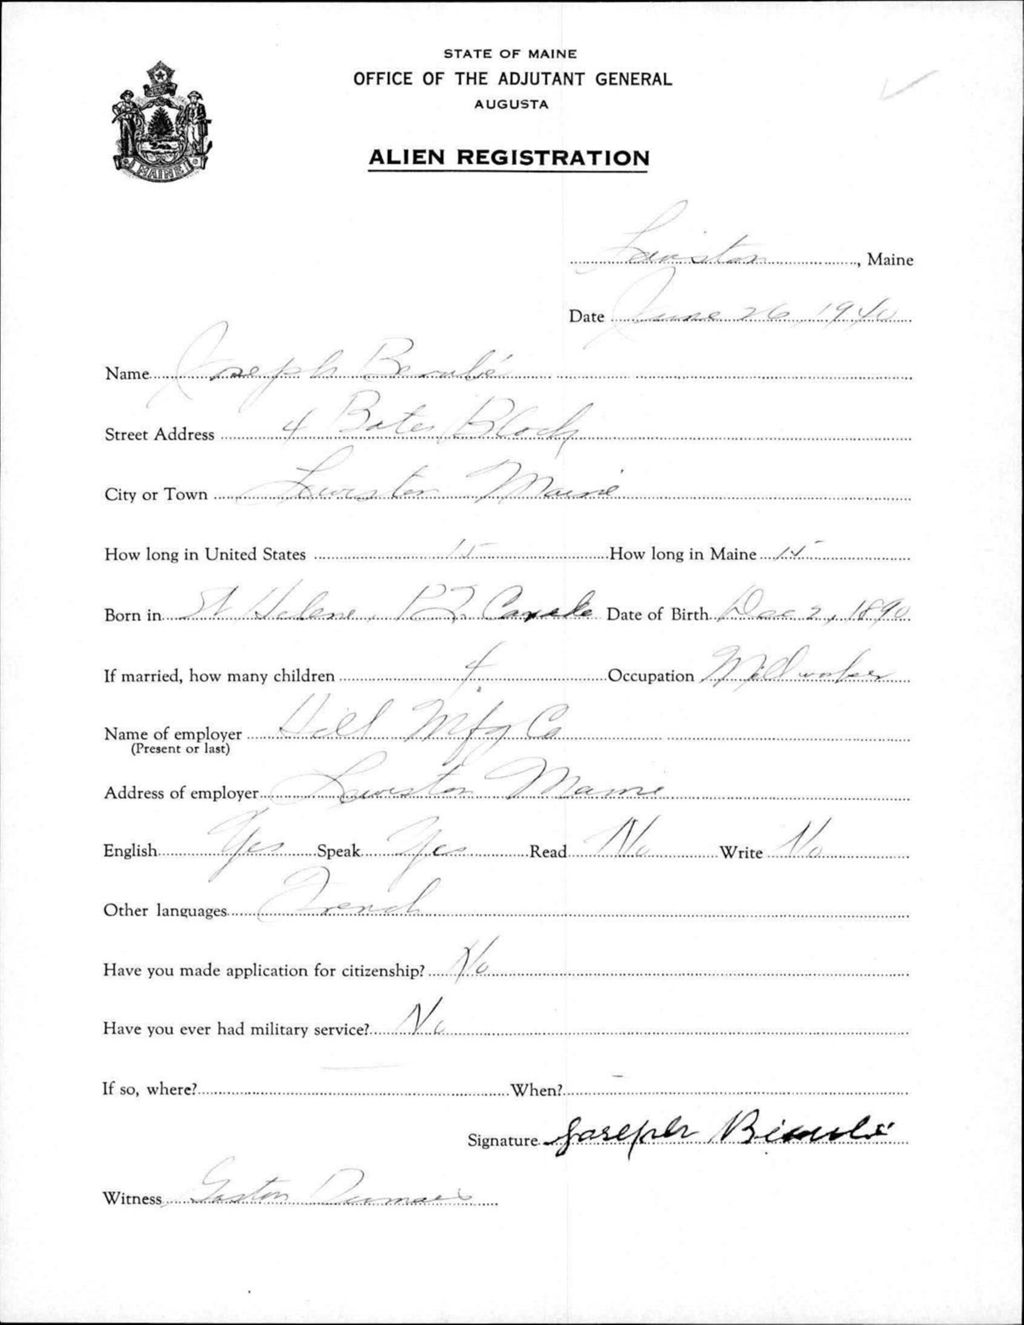 STATE OF MAINE
OFFICE OF THE ADJUTANT GENERAL
AUGUSTA
MAINE
ALIEN REGISTRATION
Lewiston, Maine
Date June 26, 1940
Name Joseph
Street Address 4 Bates Block
City or Town Lewiston Maine
How long in United States 15 How long in Maine 15
Born in St Helene, P2 Canada Date of Birth Dec 2, 1890
If married, how many children 4 Occupation Millworker
Name of employer Hill Mfg Co
(Present or last)
Address of employer Lewiston Maine
English Yes Speak Yes Read No Write No
Other languages French
Have you made application for citizenship? No
Have you ever had military service? No
If so, where? — When? —
Signature Joseph
Witness Gaston